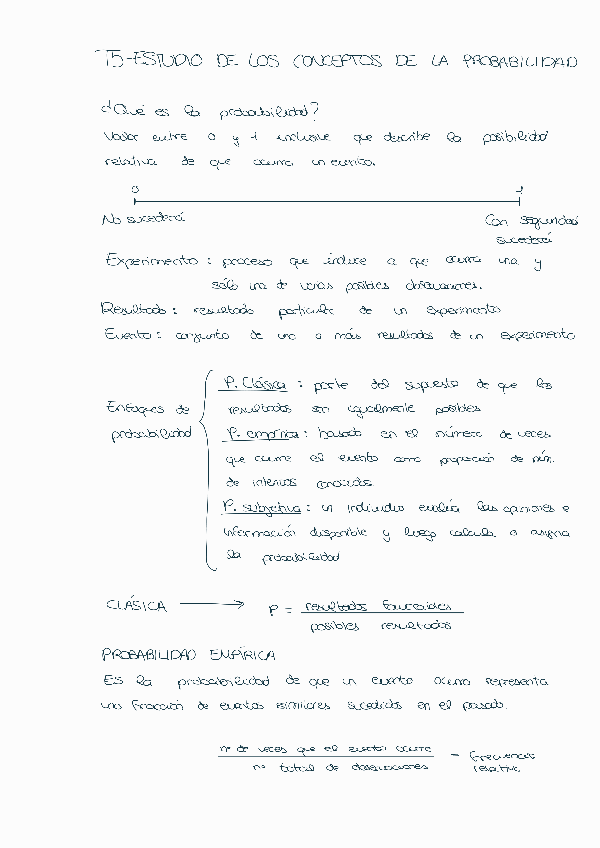 T5-ESTUDIO DE LOS CONCEPTOS DE LA PROBABILIDAD
¿Qué es la probabilidad?
Valor entre 0 y 1 inclusive que describe la posibilidad
relativa de que ocurra un evento.
0 1
No sucederá Con seguridad
sucederá
Experimento: proceso que induce a que ocurra una y
sólo una de varias posibles observaciones.
Resultado: resultado particular de un experimento
Evento: conjunto de uno o más resultados de un experimento
Enfoques de
probabilidad
P. Clásica: parte del supuesto de que los
resultados son igualmente posibles
P. empírica: basado en el número de veces
que ocurre el evento como proporción de núm.
de intentos conocidos
P. subjetiva: un individuo evalúa las opiniones e
información disponible y luego calcula o asigna
la probabilidad
CLÁSICA → P = resultados favorables
posibles resultados
PROBABILIDAD EMPÍRICA
Es la probabilidad de que un evento ocurra representa
una fracción de eventos similares sucedidos en el pasado.
nº de veces que el evento ocurre = Frecuencia
nº total de observaciones relativa